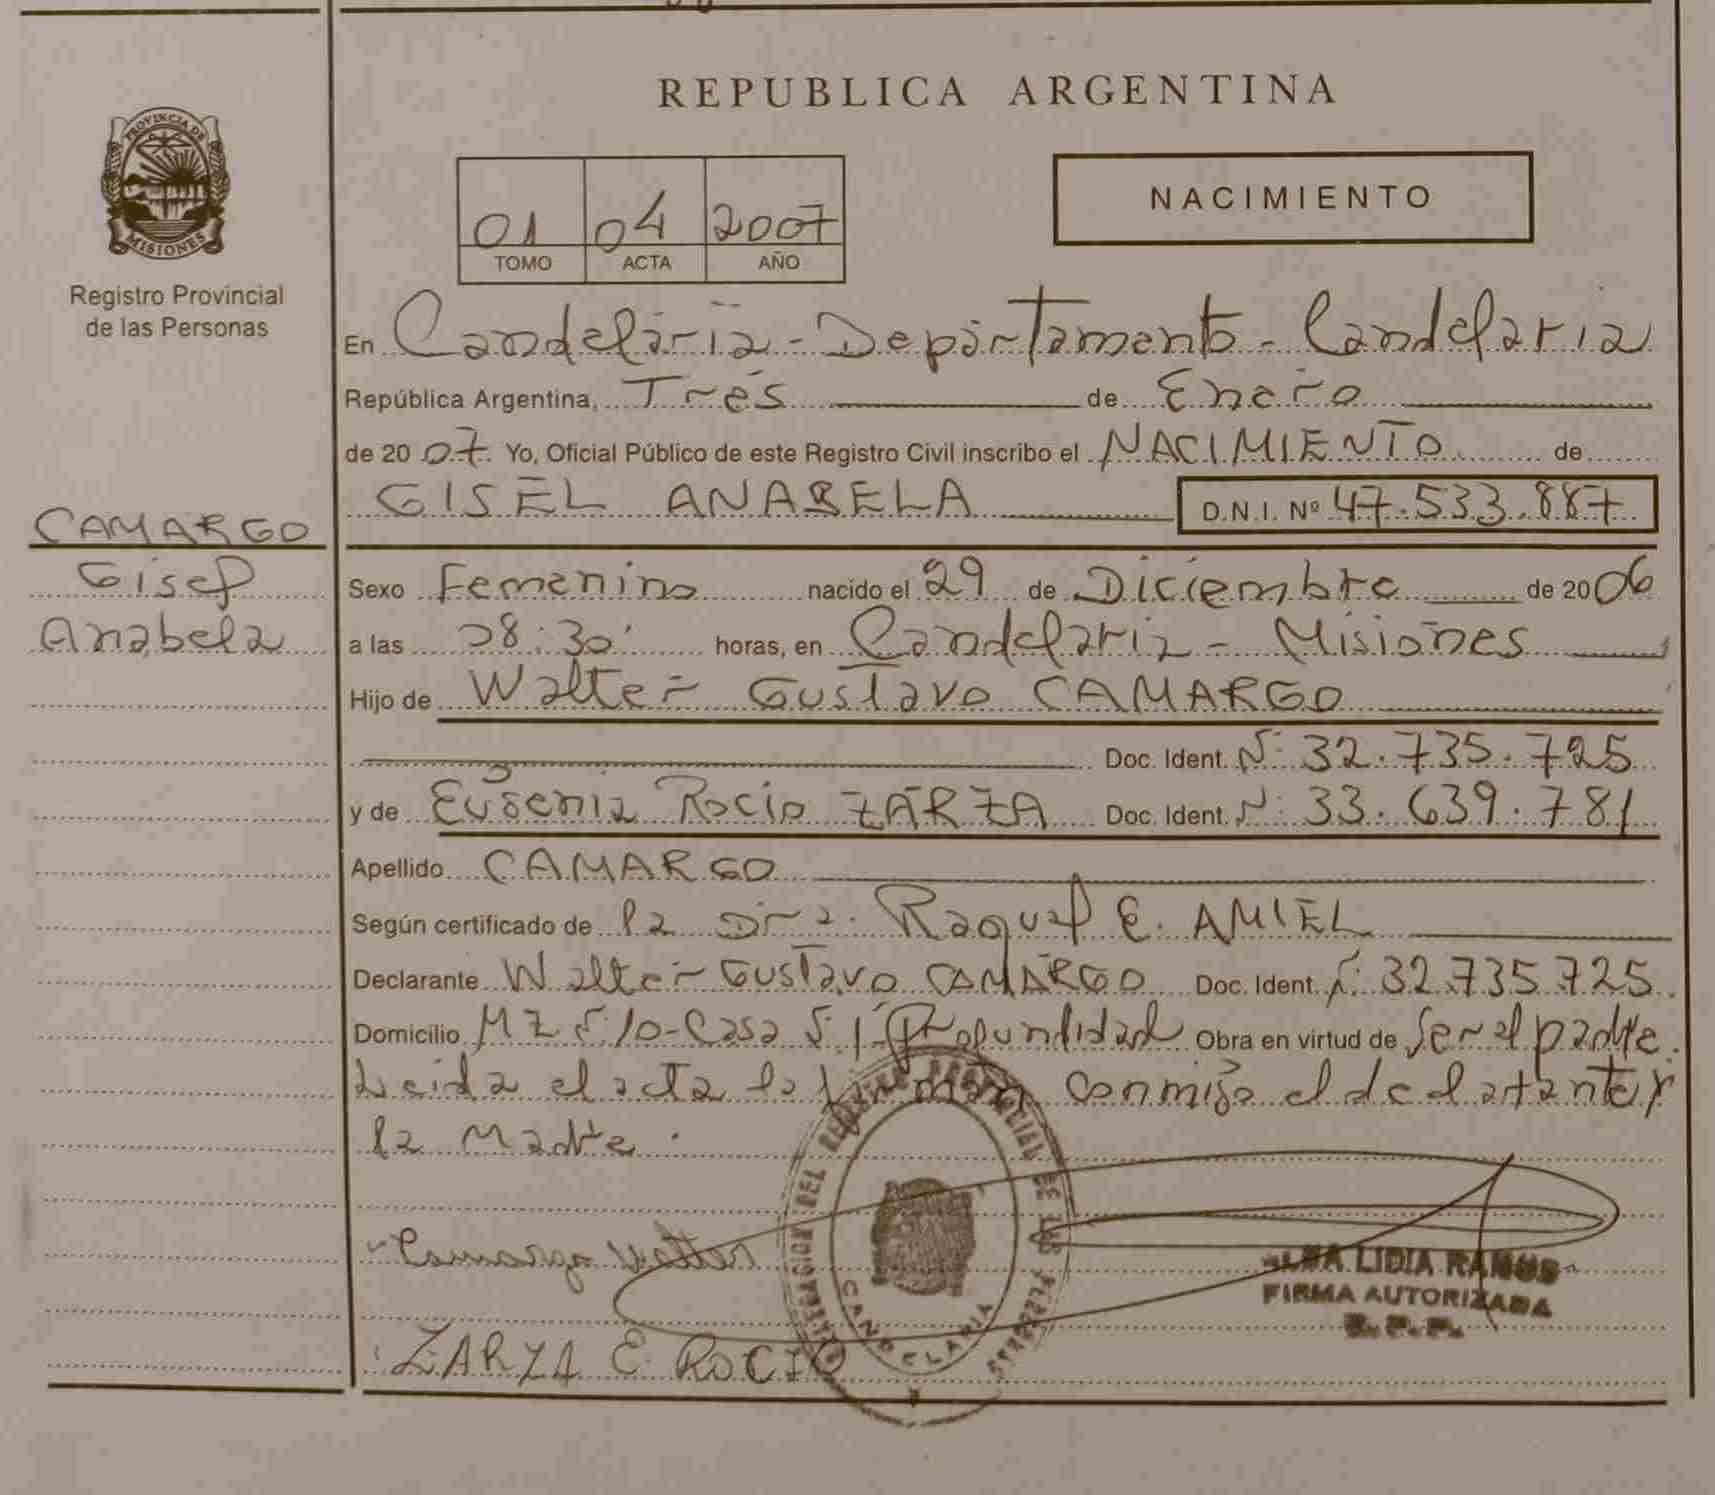 REPUBLICA ARGENTINA
PROVINCIA DE
MISIONES
Registro Provincial
de las Personas
01 04 2007
TOMO ACTA AÑO
NACIMIENTO
En Candelaria - Departamento - Candelaria
República Argentina, Tres de Enero
de 2007 Yo, Oficial Público de este Registro Civil inscribo el NACIMIENTO de
GISEL ANABELA D.N.I. Nº 47.533.887
CAMARGO
Gisel
Anabela
Sexo Femenino nacido el 29 de Diciembre de 2006
a las 08:30 horas, en Candelaria - Misiones
Hijo de Walter Gustavo CAMARGO
Doc. Ident. Nº 32.735.725
y de Eugenia Rocio ZARZA Doc. Ident. Nº 33.639.781
Apellido CAMARGO
Según certificado de la Dra. Raquel E. AMIEL
Declarante Walter Gustavo CAMARGO Doc. Ident. Nº 32.735.725
Domicilio MZ Nº 10 - Casa Nº 1 - Profundidad Obra en virtud de ser el padre.
Leida el acta la firman conmigo el declarante y
la Madre.
Camargo Walter
ZARZA E ROCIO
DELEGACION DEL REGISTRO PROVINCIAL DE LAS PERSONAS
CANDELARIA
LIDIA RAMOS
FIRMA AUTORIZADA
R. P. P.